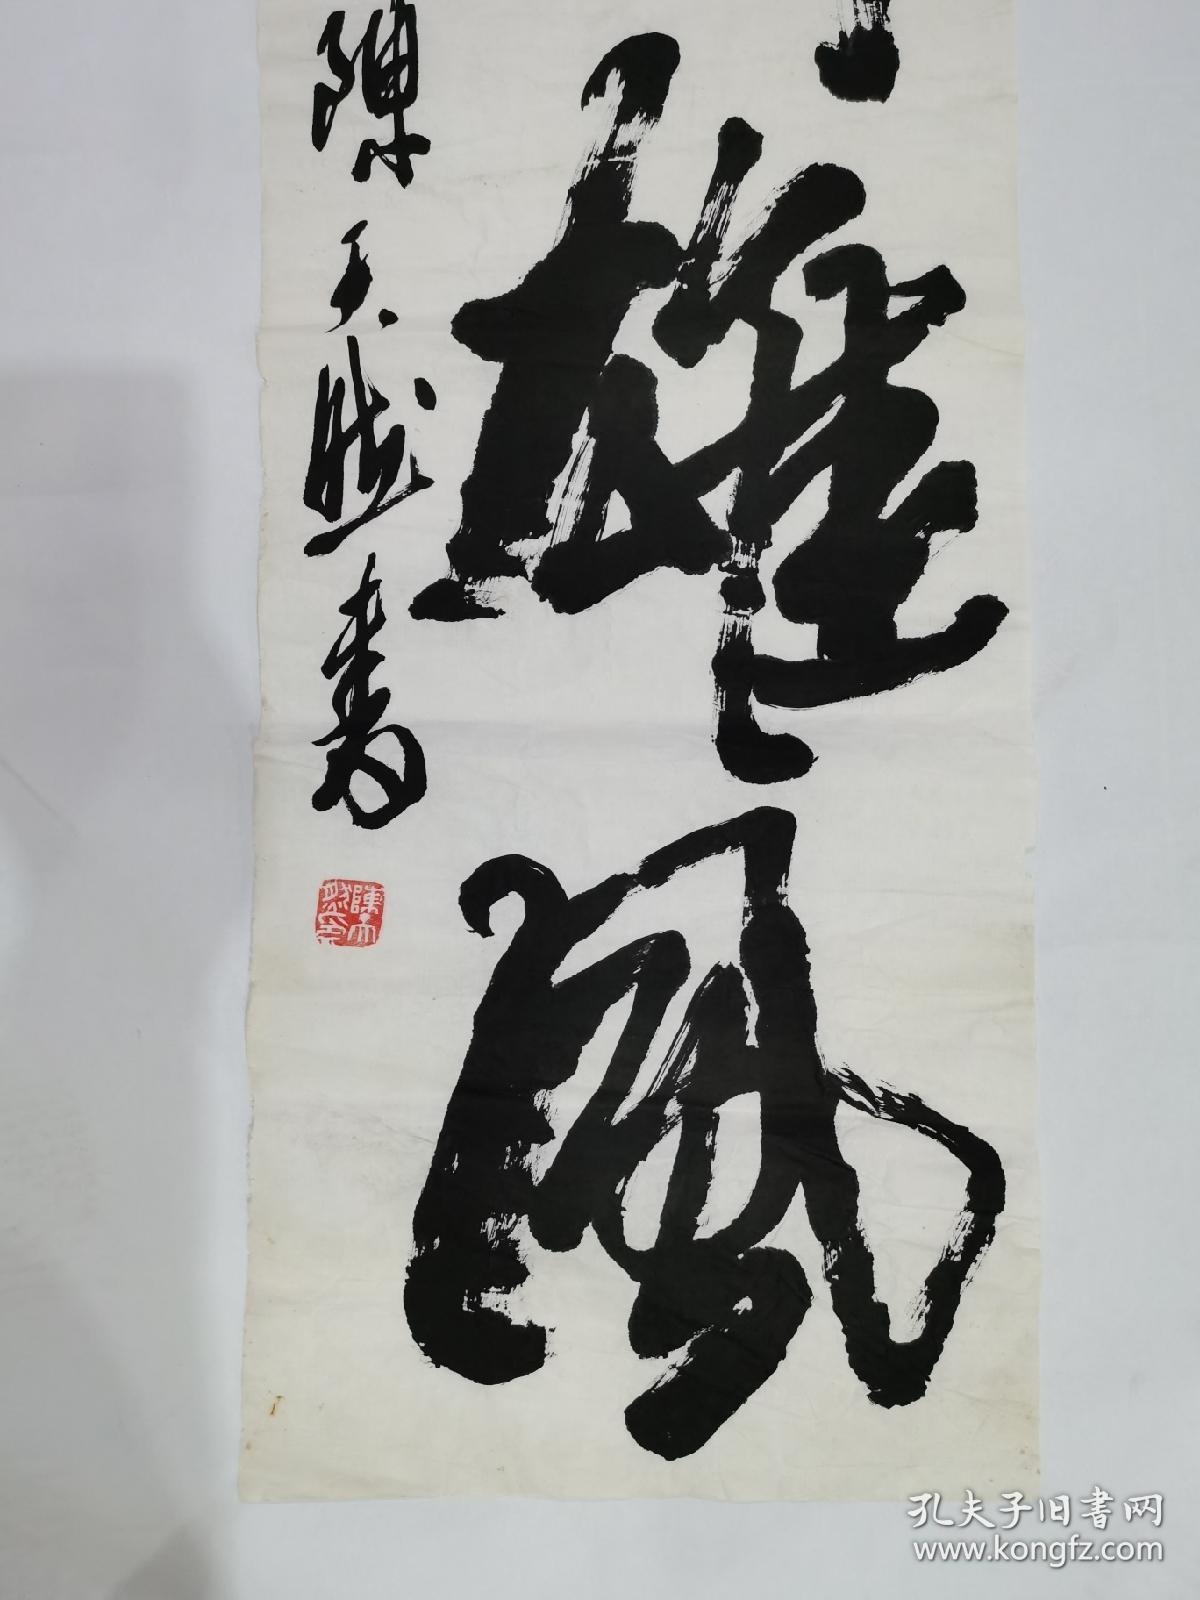 雄風
陳天然書
陳天
然印
孔夫子旧书网
www.kongfz.com